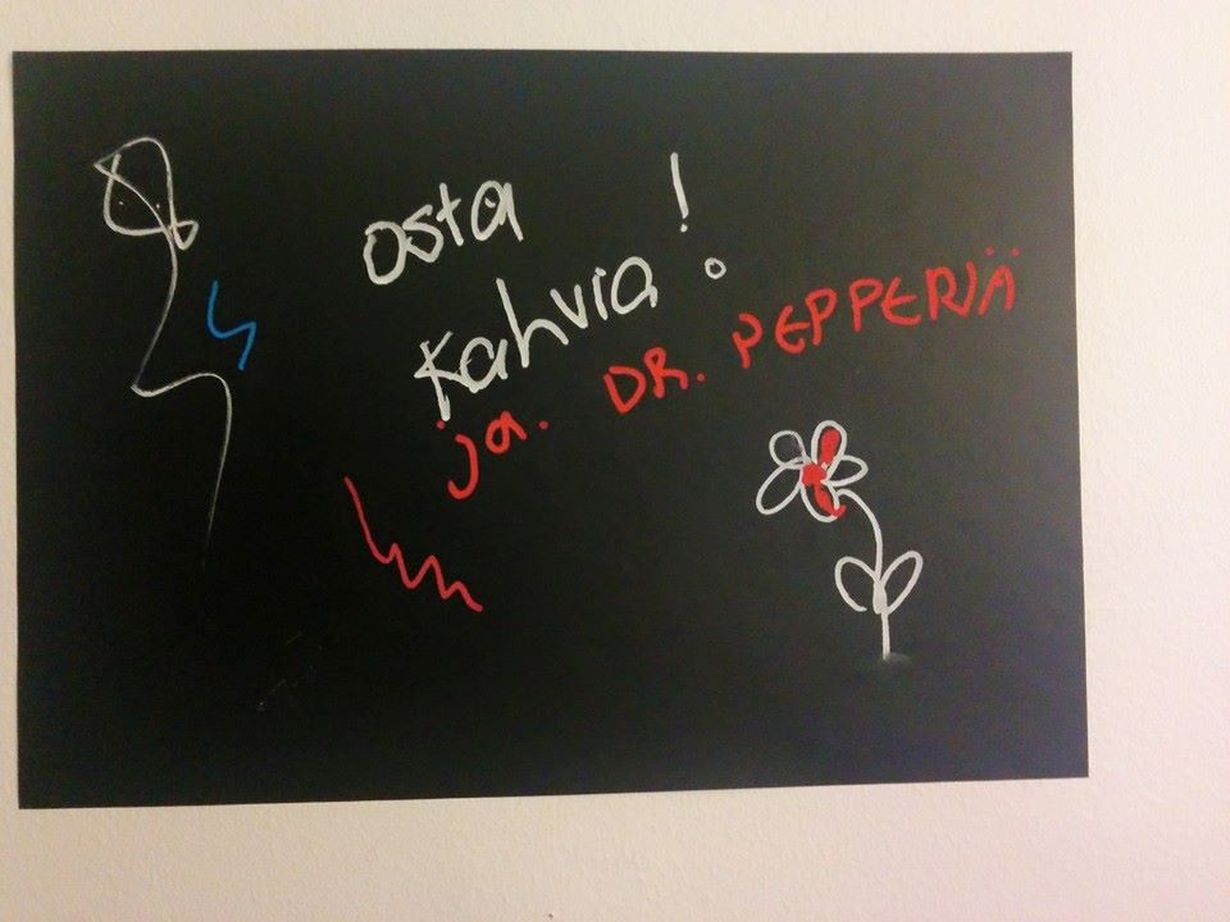 osta
kahvia!
ja. DR. PEPPERIÄ